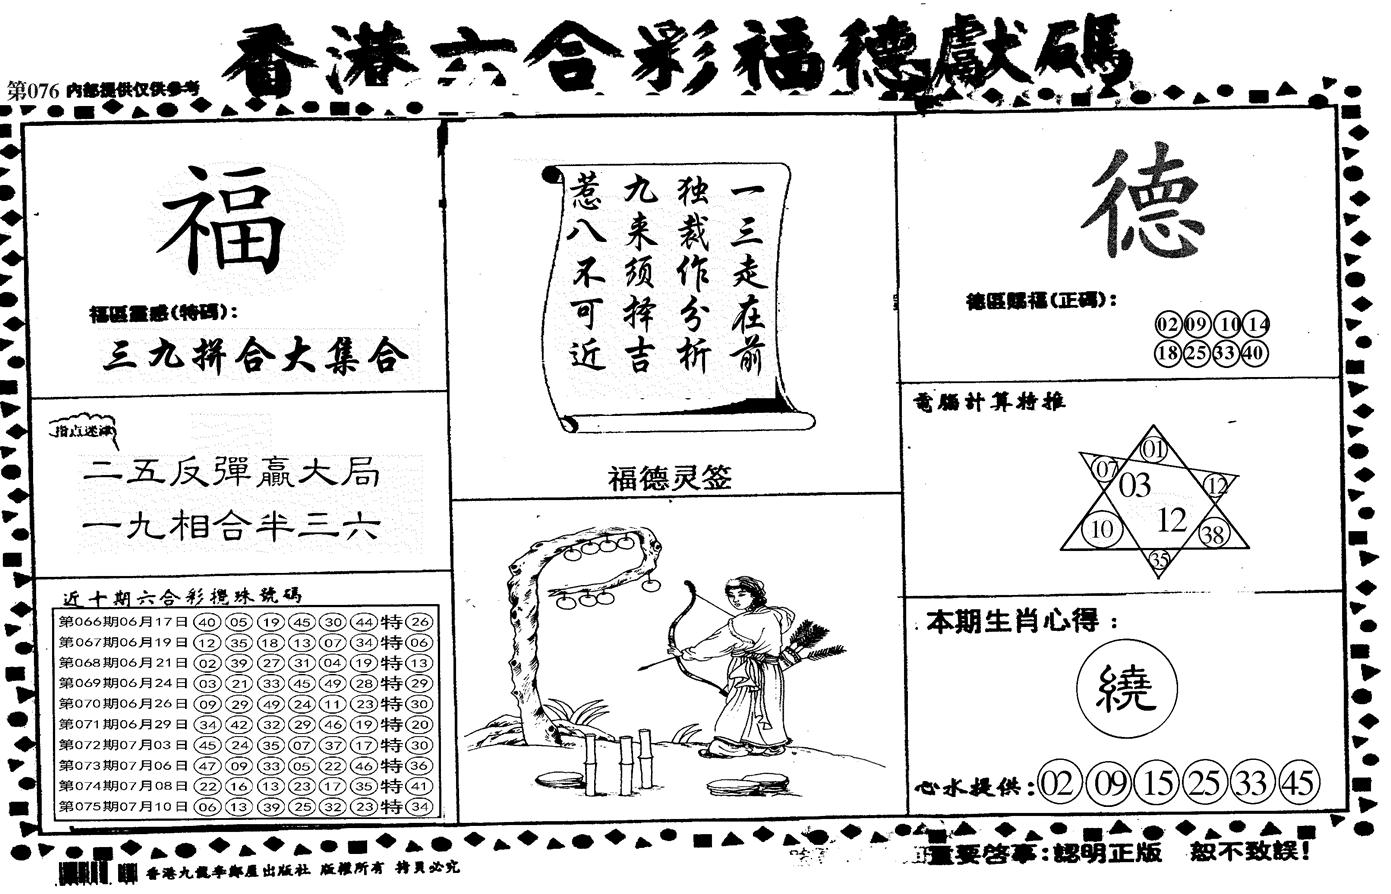 香港六合彩福德獻碼
第076 内部提供仅供参考
福
福區靈感(特碼):
三九拼合大集合
指点迷津
二五反彈贏大局
一九相合半三六
近十期六合彩攪珠號碼
第066期06月17日 40 05 19 45 30 44 特 26
第067期06月19日 12 35 18 13 07 34 特 06
第068期06月21日 02 39 27 31 04 19 特 13
第069期06月24日 03 21 33 45 49 28 特 29
第070期06月26日 09 29 49 24 11 23 特 30
第071期06月29日 34 42 32 29 46 19 特 20
第072期07月03日 45 24 35 07 37 17 特 30
第073期07月06日 47 09 33 05 22 46 特 36
第074期07月08日 22 16 13 23 17 35 特 41
第075期07月10日 06 13 39 25 32 23 特 34
一三走在前
独裁作分析
九来须择吉
惹八不可近
福德灵签
德
德區賜福(正碼):
02 09 10 14
18 25 33 40
電腦計算特推
01
07
03
12
12
10
38
35
本期生肖心得:
繞
心水提供: 02 09 15 25 33 45
重要啓事:認明正版 恕不致誤!
版權所有 拷貝必究